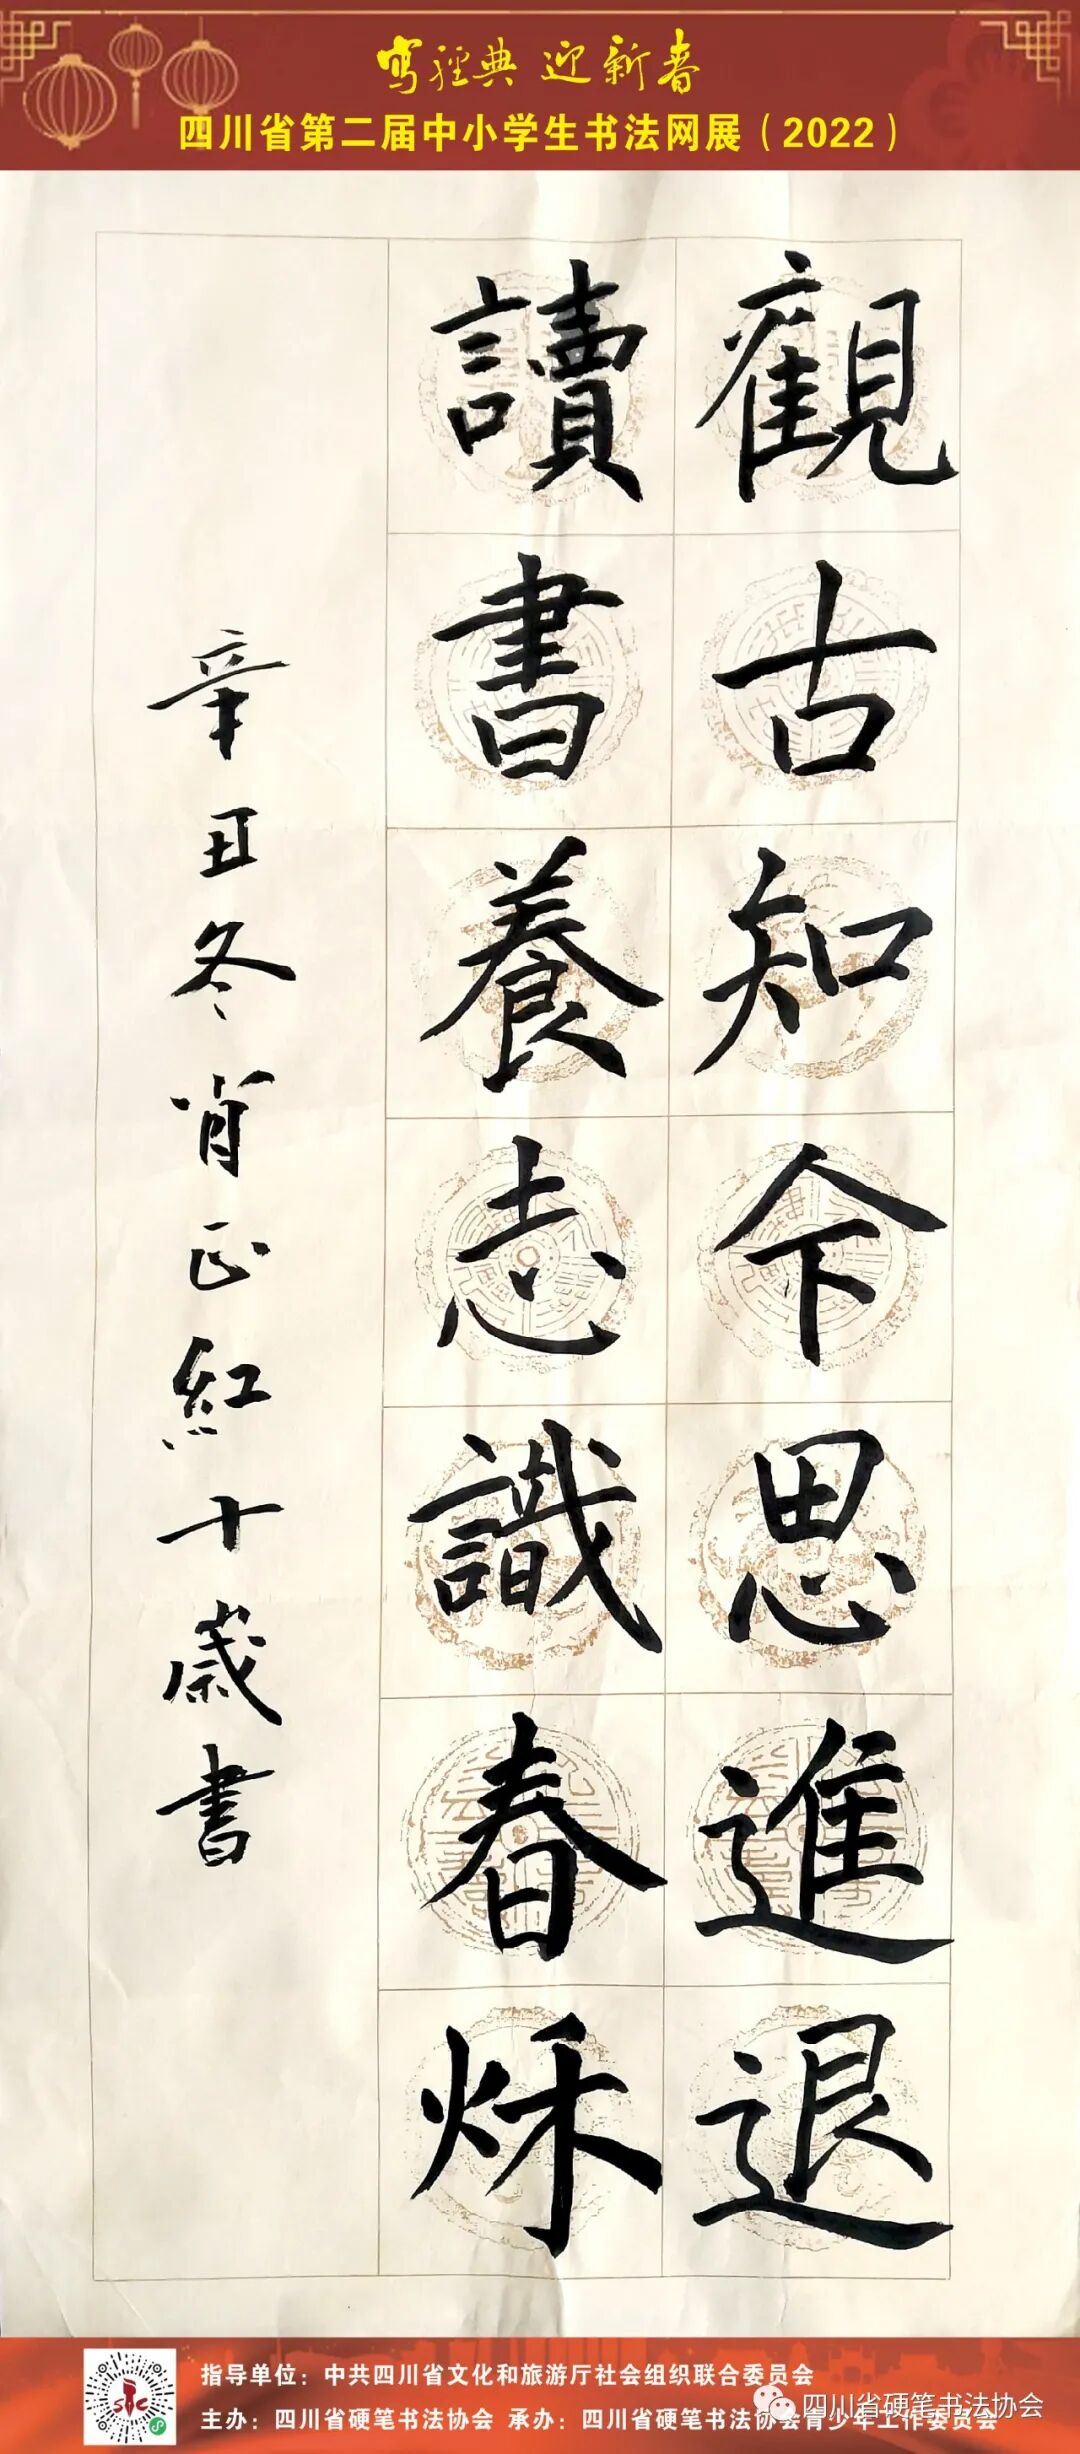 寫經典 迎新春
四川省第二届中小学生书法网展（2022）
觀古知今思進退
讀書養志識春秌
辛丑冬肖正紅十歲書
指导单位：中共四川省文化和旅游厅社会组织联合委员会
主办：四川省硬笔书法协会 承办：四川省硬笔书法协会青少年工作委员会
四川省硬笔书法协会